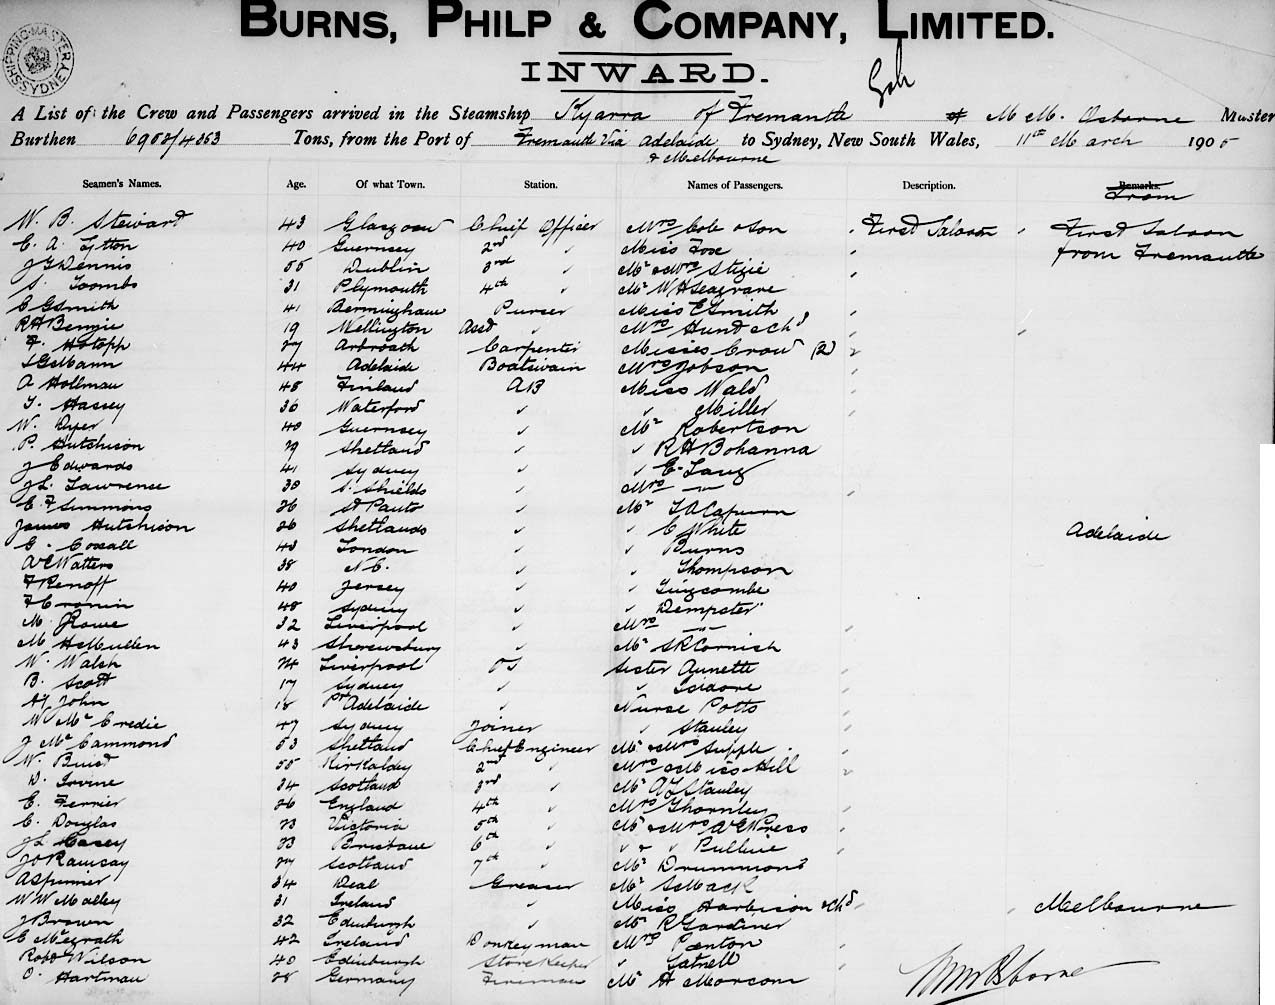 BURNS, PHILP & COMPANY, LIMITED.
INWARD.
SHIPPING MASTER SYDNEY
A List of the Crew and Passengers arrived in the Steamship Kyarra of Fremantle M M. Osborne Master
Burthen 6953/4353 Tons, from the Port of Fremantle Via Adelaide & Melbourne to Sydney, New South Wales, 11th March 1905
Seamen's Names. Age. Of what Town. Station. Names of Passengers. Description. Remarks. From
W. B. Steward 43 Glasgow Chief Officer Mrs Cole & Son " First Saloon " First Saloon
C. A. Lytton 40 Guernsey 2nd " Miss Fox from Fremantle
J G Dennis 55 Dublin 3rd " Mr & Mrs Stizie "
S. Toombs 31 Plymouth 4th " Mr W H Seagrave "
C G Smith 41 Bermingham Purser Miss E Smith "
R H Bennie 19 Wellington Asst " Mrs Hunt & Chd " "
F. Hotoph 27 Arbroath Carpenter Misses Crow (2) "
Mann 44 Adelaide Boatswain Mrs Jobson "
A Hollman 48 Finland AB Miss Wald "
T. Hassey 36 Waterford " " Miller "
W. Piper 40 Guernsey " Mr Robertson
P. Hutchison 29 Shetland " " R H Bohanna
J Edwards 41 Sydney " " E. Lang
J L. Lawrence 38 S. Shields " Mrs " "
E. F Simmons 26 St Pauls " Mr
James Hutchison 26 Shetlands " " C White Adelaide
G. Coxall 43 London " " Burns
A E Watters 38 N. C. " " Thompson
F Renoff 40 Jersey " " Luizcombe
F Cronin 48 Sydney " " Dempster
M. Rowe 32 Liverpool " Mrs " "
M McMullen 43 Shrewsbury " Mr S R Cornish
W. Walsh 24 Liverpool OS Sister Annette "
B. Scott 17 Sydney " " Isidore "
H John 18 Pt Adelaide " Nurse Potts "
W McCredie 47 Sydney Joiner " Stanley "
J McCammond 53 Shetland Chief Engineer Mr & Mrs Supple "
W. Buist 55 Kirkaldy 2nd " Mrs & Miss Hill "
D. Irvine 34 Scotland 3rd " Mr A L Stanley
E. Ferrier 26 England 4th " Mrs Thornley "
C. Douglas 23 Victoria 5th " Mr & Mrs A E Press "
J L Casey 23 Brisbane 6th " " " " Pullin "
J D Ramsay 27 Scotland 7th " Mr Drummond
34 Deal Greaser Mr S Mack
W W Malley 31 Ireland " Miss Harbison & Chd " " Melbourne
J Brown 32 Edinburgh " Mr R Gardiner
E McGrath 42 Ireland Donkeyman Mrs Penton "
Robt Wilson 40 Edinburgh Storekeeper " Tatnell "
O. Hartman 28 Germany Fireman Mr H Morcom